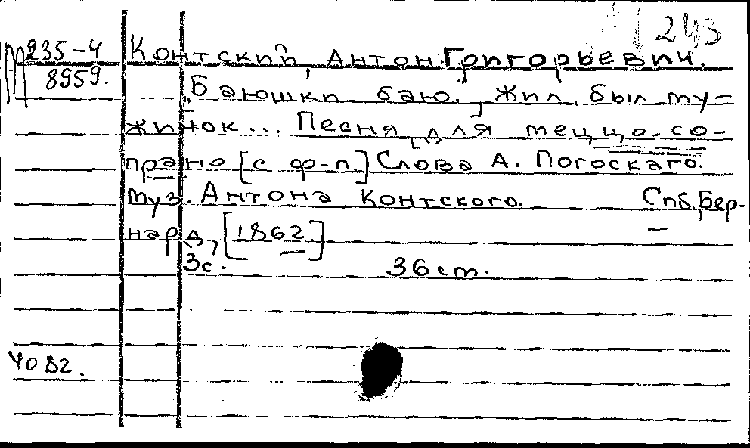 243
М 235-4 Контский, Антон Григорьевич.
8959.
"Баюшки баю". Жил, был му-
жичок... Песня для меццо-со-
прано [с ф-п] Слова А. Погоскаго.
Муз. Антона Контского. Спб. Бер-
нард, [1862]
3с. 36 ст.
4082.